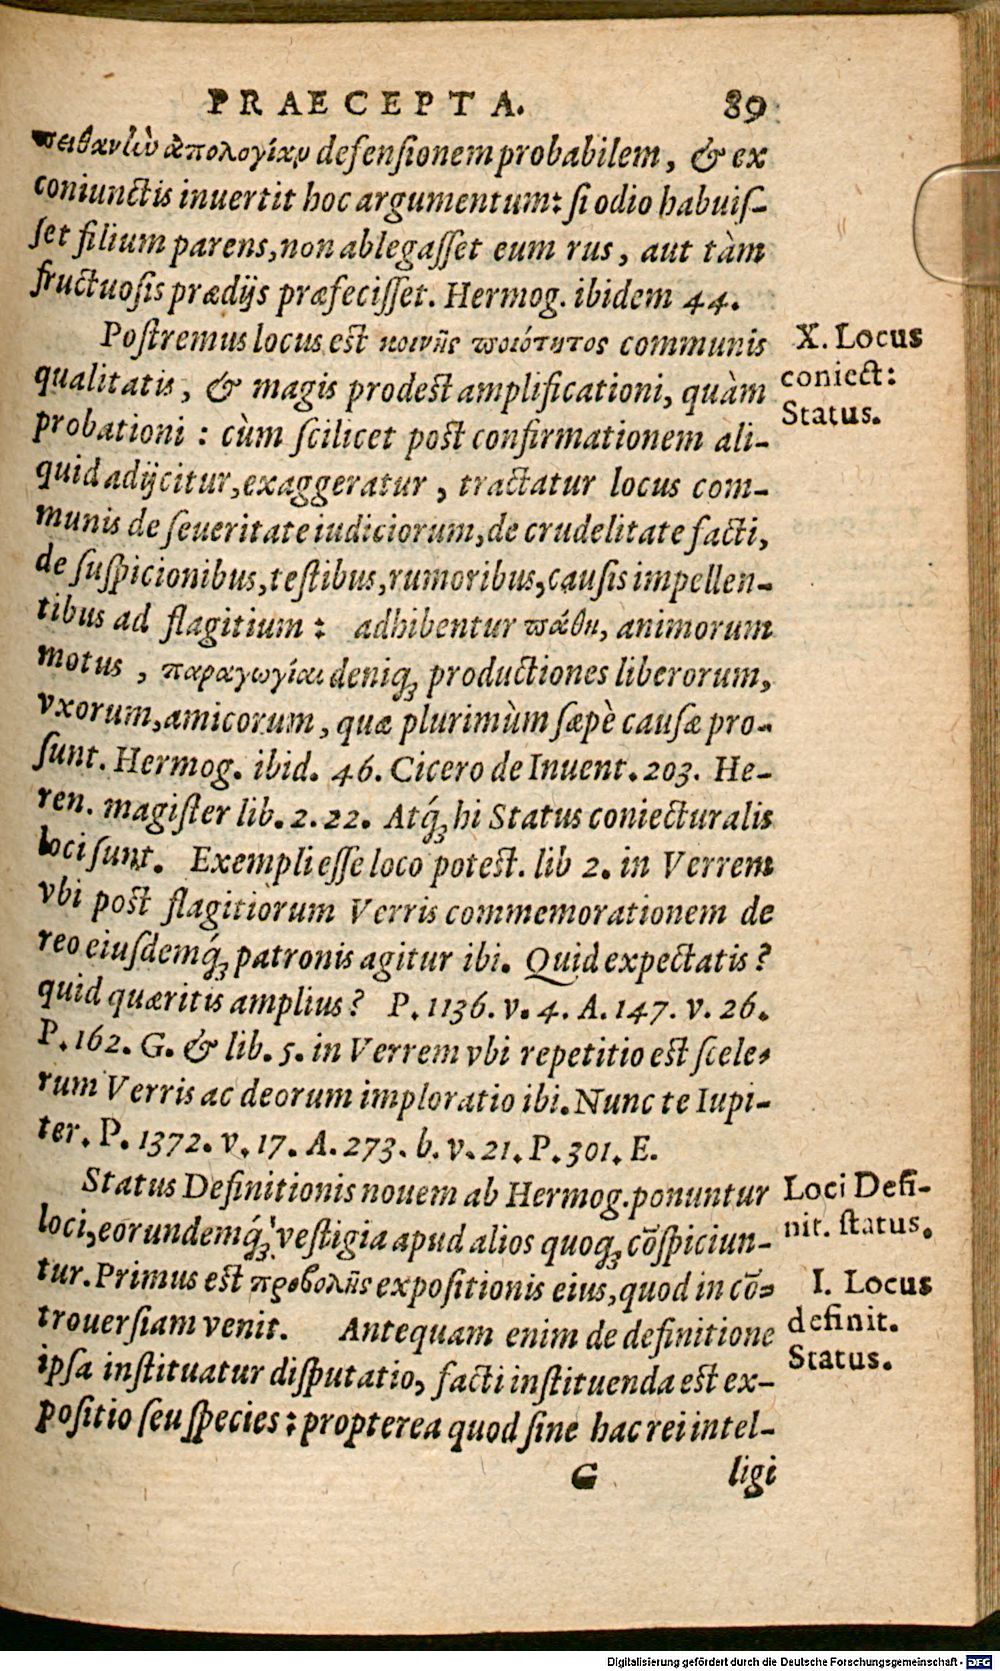 PRAECEPTA. 89
πειθανὴν ἀπολογίαν defensionem probabilem, & ex
coniunctis inuertit hoc argumentum: si odio habuis-
set filium parens, non ablegasset eum rus, aut tàm
fructuosis prædijs præfecisset. Hermog. ibidem 44.
Postremus locus est κοινῆς ποιότητος communis
X. Locus
qualitatis, & magis prodest amplificationi, quàm
coniect:
probationi : cùm scilicet post confirmationem ali-
Status.
quid adijcitur, exaggeratur, tractatur locus com-
munis de seueritate iudiciorum, de crudelitate facti,
de suspicionibus, testibus, rumoribus, causis impellen-
tibus ad flagitium : adhibentur πάθη, animorum
motus, παραγωγίαι deniq; productiones liberorum,
vxorum, amicorum, quæ plurimùm sæpè causæ pro-
sunt. Hermog. ibid. 46. Cicero de Inuent. 203. He-
ren. magister lib. 2. 22. Atq́; hi Status coniecturalis
loci sunt. Exempli esse loco potest. lib 2. in Verrem
vbi post flagitiorum Verris commemorationem de
reo eiusdemq́; patronis agitur ibi. Quid expectatis?
quid quæritis amplius? P. 1136. v. 4. A. 147. v. 26.
P. 162. G. & lib. 5. in Verrem vbi repetitio est scele-
rum Verris ac deorum imploratio ibi. Nunc te Iupi-
ter. P. 1372. v. 17. A. 273. b. v. 21. P. 301. E.
Status Definitionis nouem ab Hermog. ponuntur
Loci Defi-
loci, eorundemq́; vestigia apud alios quoq; cōspiciun-
nit. status.
tur. Primus est προβολῆς expositionis eius, quod in cō-
I. Locus
trouersiam venit. Antequam enim de definitione
definit.
ipsa instituatur disputatio, facti instituenda est ex-
Status.
positio seu species: propterea quod sine hac rei intel-
G ligi
Digitalisierung gefördert durch die Deutsche Forschungsgemeinschaft - DFG